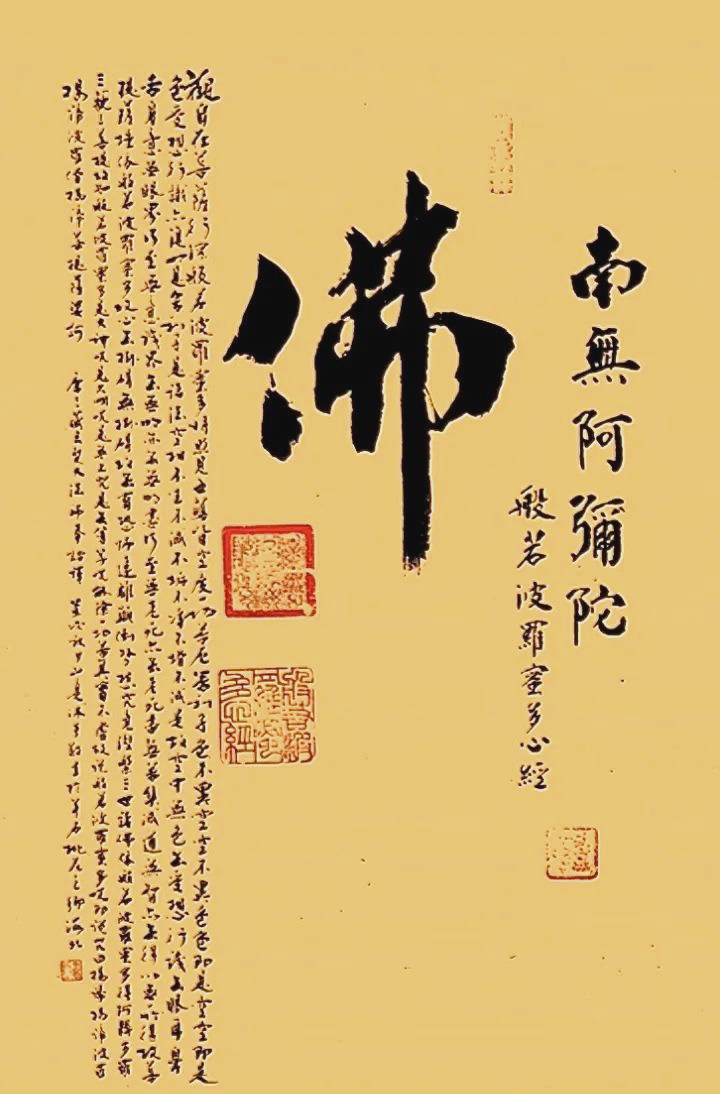 南無阿彌陀
佛
般若波羅蜜多心經
觀自在菩薩行深般若波羅蜜多時照見五蘊皆空度一切苦厄舍利子色不異空空不異色色即是空空即是
色受想行識亦復如是舍利子是諸法空相不生不滅不垢不淨不增不減是故空中無色無受想行識無眼耳鼻
舌身意無眼界乃至無意識界無無明亦無無明盡乃至無老死亦無老死盡無苦集滅道無智亦無得以無所得故菩
提薩埵依般若波羅蜜多故心無掛礙無掛礙故無有恐怖遠離顛倒夢想究竟涅槃三世諸佛依般若波羅蜜多得阿耨多羅
三藐三菩提故知般若波羅蜜多是大神咒是大明咒是無上咒是無等等咒能除一切苦真實不虛故說般若波羅蜜多咒即說咒曰揭諦揭諦波羅
揭諦波羅僧揭諦菩提薩婆訶 唐三藏玄奘大法師奉詔譯